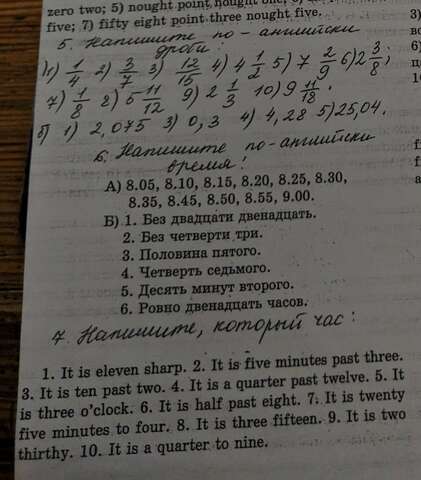 zero two; 5) nought point nought one;
five; 7) fifty eight point three nought five.
5. Напишите по-английски
дроби:
а) 1) 1/4 2) 3/7 3) 12/15 4) 4 1/2 5) 7 2/9 6) 2 3/8;
7) 1/8 8) 5 11/12 9) 2 1/3 10) 9 11/18.
б) 1) 2,075 3) 0,3 4) 4,28 5) 25,04.
6. Напишите по-английски
время:
А) 8.05, 8.10, 8.15, 8.20, 8.25, 8.30,
8.35, 8.45, 8.50, 8.55, 9.00.
Б) 1. Без двадцати двенадцать.
2. Без четверти три.
3. Половина пятого.
4. Четверть седьмого.
5. Десять минут второго.
6. Ровно двенадцать часов.
7. Напишите, который час:
1. It is eleven sharp. 2. It is five minutes past three.
3. It is ten past two. 4. It is a quarter past twelve. 5. It
is three o'clock. 6. It is half past eight. 7. It is twenty
five minutes to four. 8. It is three fifteen. 9. It is two
thirthy. 10. It is a quarter to nine.